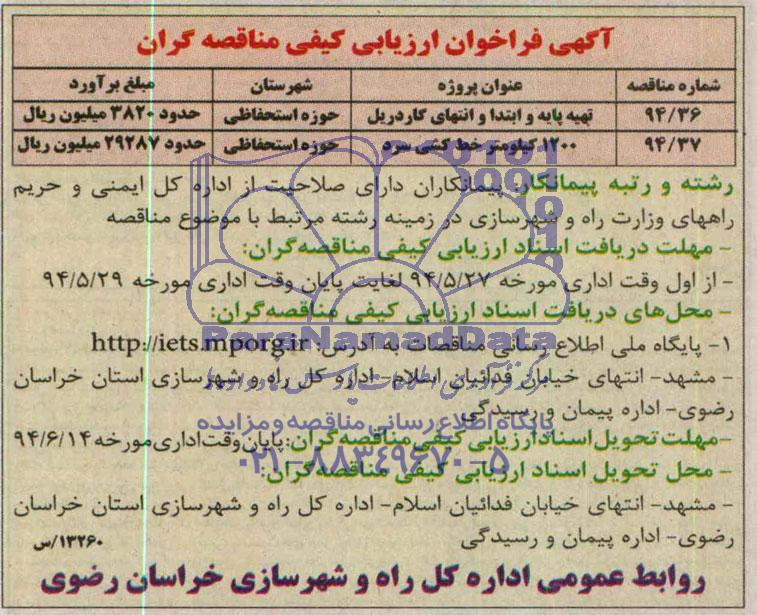 آگهی فراخوان ارزیابی کیفی مناقصه گران
شماره مناقصه عنوان پروژه شهرستان مبلغ برآورد
۹۴/۳۶ تهیه پایه و ابتدا و انتهای گاردریل حوزه استحفاظی حدود ۳۸۲۰ میلیون ریال
۹۴/۳۷ ۱۲۰۰ کیلومتر خط کشی سرد حوزه استحفاظی حدود ۲۹۲۸۷ میلیون ریال
رشته و رتبه پیمانکار: پیمانکاران دارای صلاحیت از اداره کل ایمنی و حریم
راههای وزارت راه و شهرسازی در زمینه رشته مرتبط با موضوع مناقصه
- مهلت دریافت اسناد ارزیابی کیفی مناقصه‌گران:
- از اول وقت اداری مورخه ۹۴/۵/۲۷ لغایت پایان وقت اداری مورخه ۹۴/۵/۲۹
- محل‌های دریافت اسناد ارزیابی کیفی مناقصه‌گران:
۱- پایگاه ملی اطلاع رسانی مناقصات به آدرس: http://iets.mporg.ir
- مشهد- انتهای خیابان فدائیان اسلام- اداره کل راه و شهرسازی استان خراسان
رضوی- اداره پیمان و رسیدگی
-مهلت تحویل اسناد ارزیابی کیفی مناقصه‌گران: پایان وقت اداری مورخه ۹۴/۶/۱۴
- محل تحویل اسناد ارزیابی کیفی مناقصه‌گران:
- مشهد- انتهای خیابان فدائیان اسلام- اداره کل راه و شهرسازی استان خراسان
رضوی- اداره پیمان و رسیدگی
۱۳۲۶۰/س
روابط عمومی اداره کل راه و شهرسازی خراسان رضوی
ParsNamadData
پایگاه اطلاع رسانی مناقصه و مزایده
۰۲۱-۸۸۳۴۹۶۷۰-۵